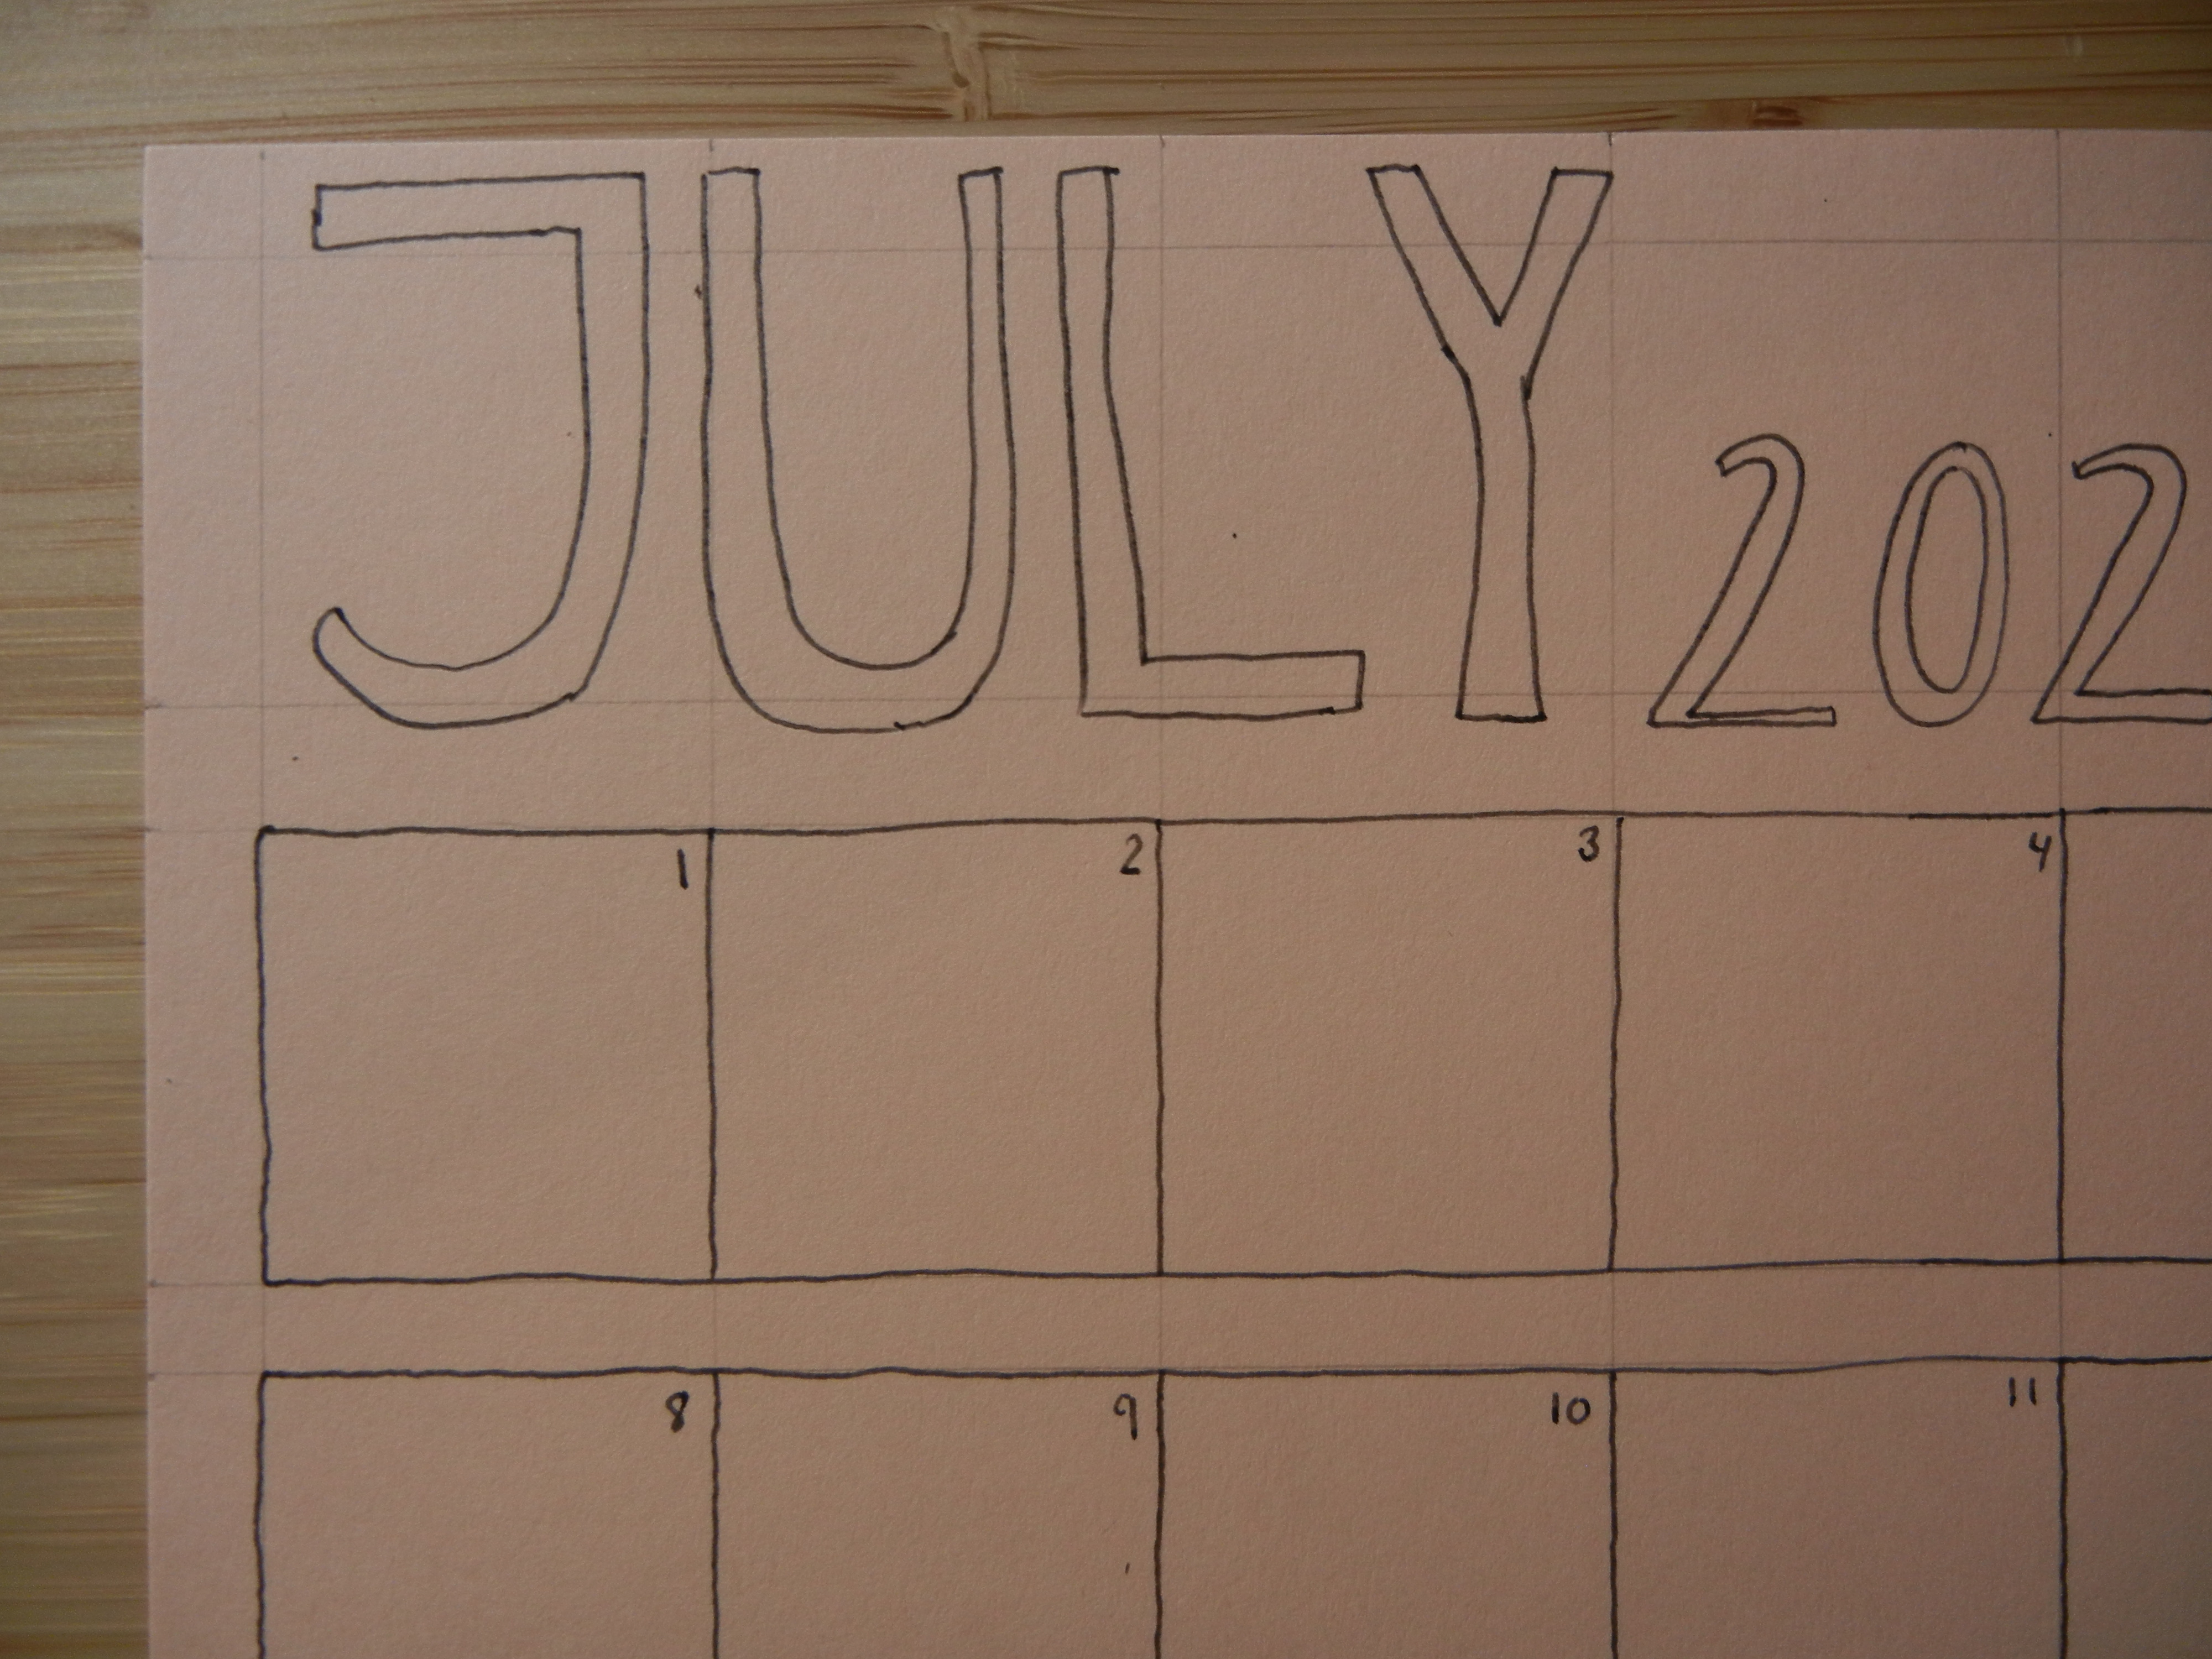 JULY 202
1 2 3 4
8 9 10 11